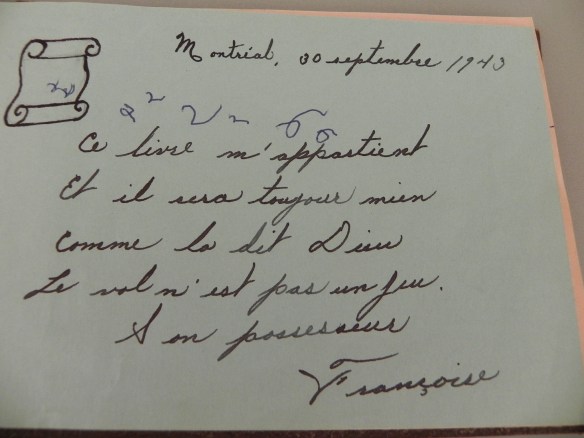 Montréal, 30 septembre 1943
Ce livre m'appartient
Et il sera toujour mien
Comme la dit Dieu
Le vol n'est pas un jeu.
Son possesseur
Françoise